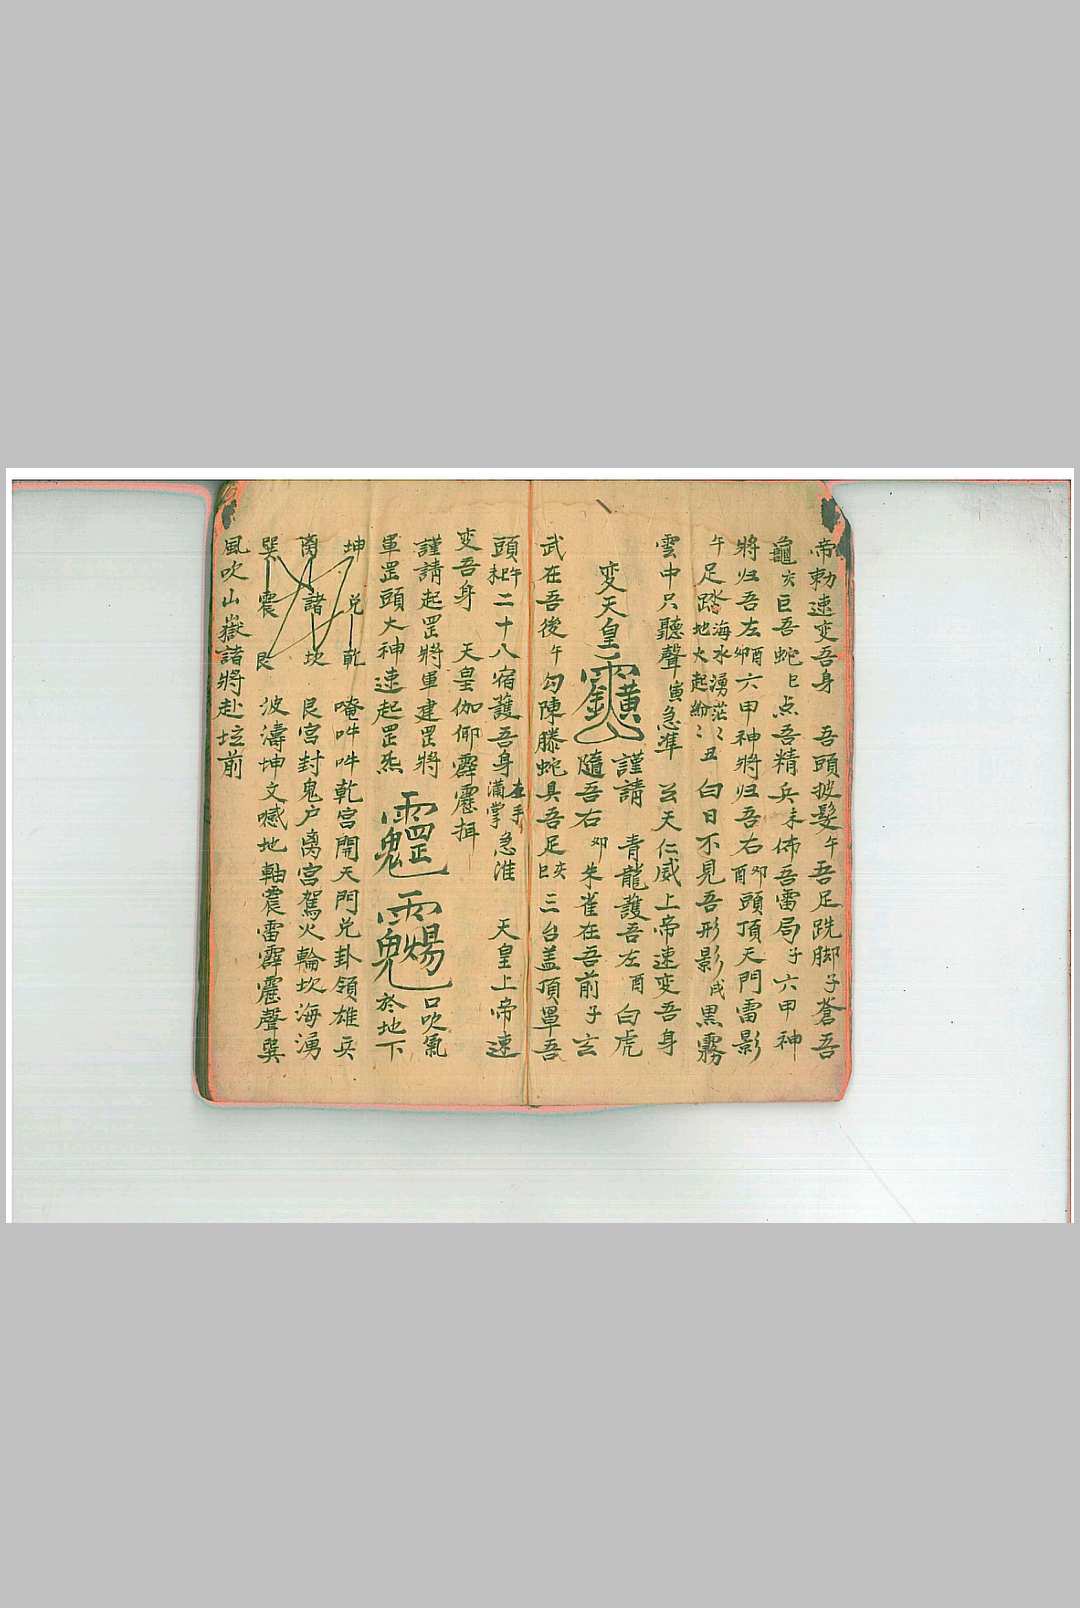 帝勅速变吾身　吾頭披髮午吾足跣脚子蒼吾
龜亥巨吾蛇巳点吾精兵未佈吾雷局子六甲神
將归吾左卯酉六甲神將归吾右卯酉頭頂天門雷影
午足踏水海水湧茫〻地火起紛〻丑　白日不見吾形影戌黒霧
雲中只聽聲寅急準　公天仁威上帝速变吾身
変天皇　謹請　青龍護吾左酉白虎
隨吾右卯朱雀在吾前子玄
武在吾後午勾陳滕蛇具吾足亥巳三台盖頂罩吾
頭午未二十八宿護吾身在手满掌急准　天皇上帝速
变吾身　天皇伽仰霹靂揖
謹請起罡將軍建罡將　口吹氣
軍罡頭大神速起罡炁　於地下
坤　兑　乾　唵吽吽乾宮開天門兑卦領雄兵
离　諸　坎　艮宮封鬼户离宮駕火輪坎海湧
巽　震　艮　波濤坤文憾地軸震雷霹靂聲巽
風吹山嶽諸將赴坛前